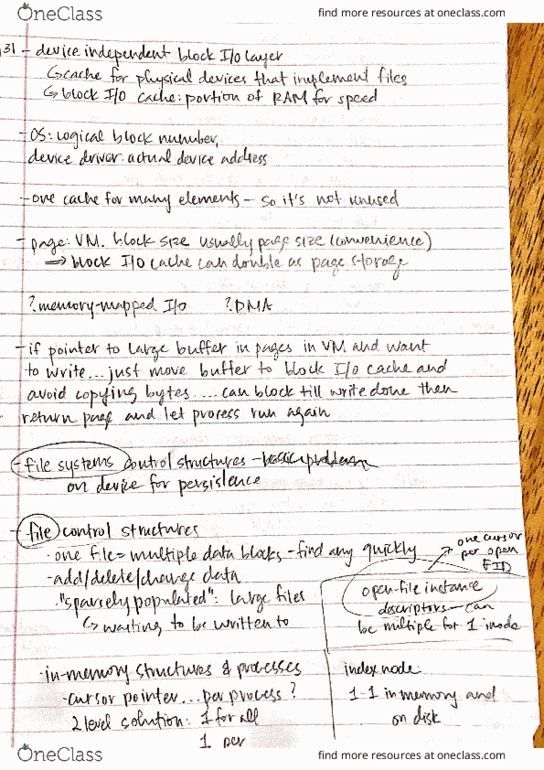 OneClass
find more resources at oneclass.com
31 - device independent block I/o layer
↳ cache for physical devices that implement files
↳ block I/O cache: portion of RAM for speed
- OS: Logical block number,
device driver: actual device address
- one cache for many elements - so it's not unused
- page: VM. block size usually page size (convenience)
→ block I/O cache can double as page storage
? memory-mapped I/O ? DMA
- if pointer to large buffer in pages in VM and want
to write... just move buffer to block I/O cache and
avoid copying bytes.... can block till write done then
return page and let process run again
- file systems control structures - basic problem
on device for persistence
- file control structures
· one file = multiple data blocks - find any quickly
one cursor
per open
FID
- add/delete/change data
"sparsely populated": large files
↳ waiting to be written to
open-file instance
descriptors - can
be multiple for 1 inode
· in-memory structures & processes
- cursor pointer... per process?
2 level solution: 1 for all
1 per
index node:
1-1 in memory and
on disk
OneClass
find more resources at oneclass.com